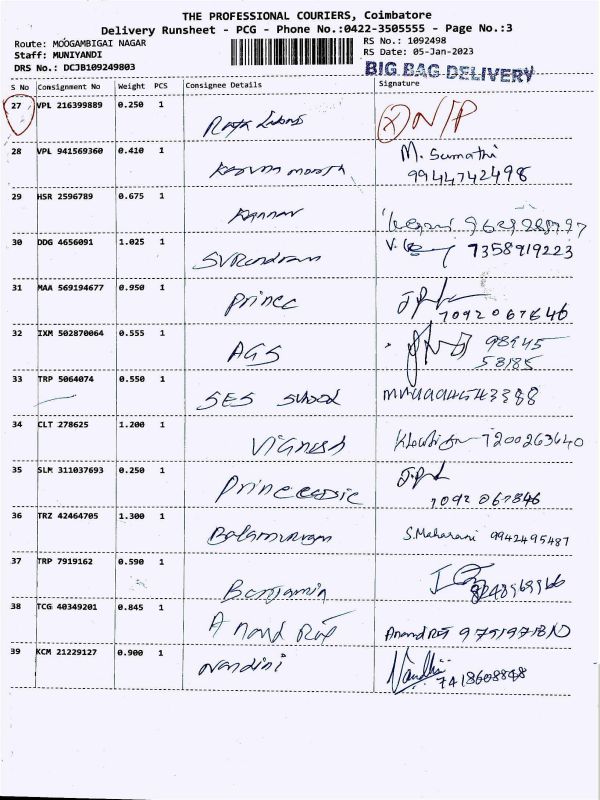 THE PROFESSIONAL COURIERS, Coimbatore
Delivery Runsheet - PCG - Phone No.:0422-3505555 - Page No.:3
Route: MOOGAMBIGAI NAGAR
RS No.: 1092498
Staff: MUNIYANDI
RS Date: 05-Jan-2023
DRS No.: DCJB109249803
BIG BAG DELIVERY
S No Consignment No Weight PCS Consignee Details Signature
27 VPL 216399889 0.250 1 N/P
28 VPL 941569360 0.410 1 M. Sumathi
9944742498
29 HSR 2596789 0.675 1 Kannan
30 DDG 4656091 1.025 1 7358919223
31 MAA 569194677 0.950 1 Prince
7092067646
32 IXM 502870064 0.555 1 AGS 98945
58185
33 TRP 5064074 0.550 1 SES
34 CLT 278625 1.200 1 Vignesh 7200263640
35 SLM 311037693 0.250 1
7092067846
36 TRZ 42464705 1.300 1 Balamurugan S.Maharani 9942495487
37 TRP 7919162 0.590 1 Benjamin
38 TCG 40349201 0.845 1 Anand Raj Anand Raj
39 KCM 21229127 0.900 1 Nandini Nandhini
7418608848